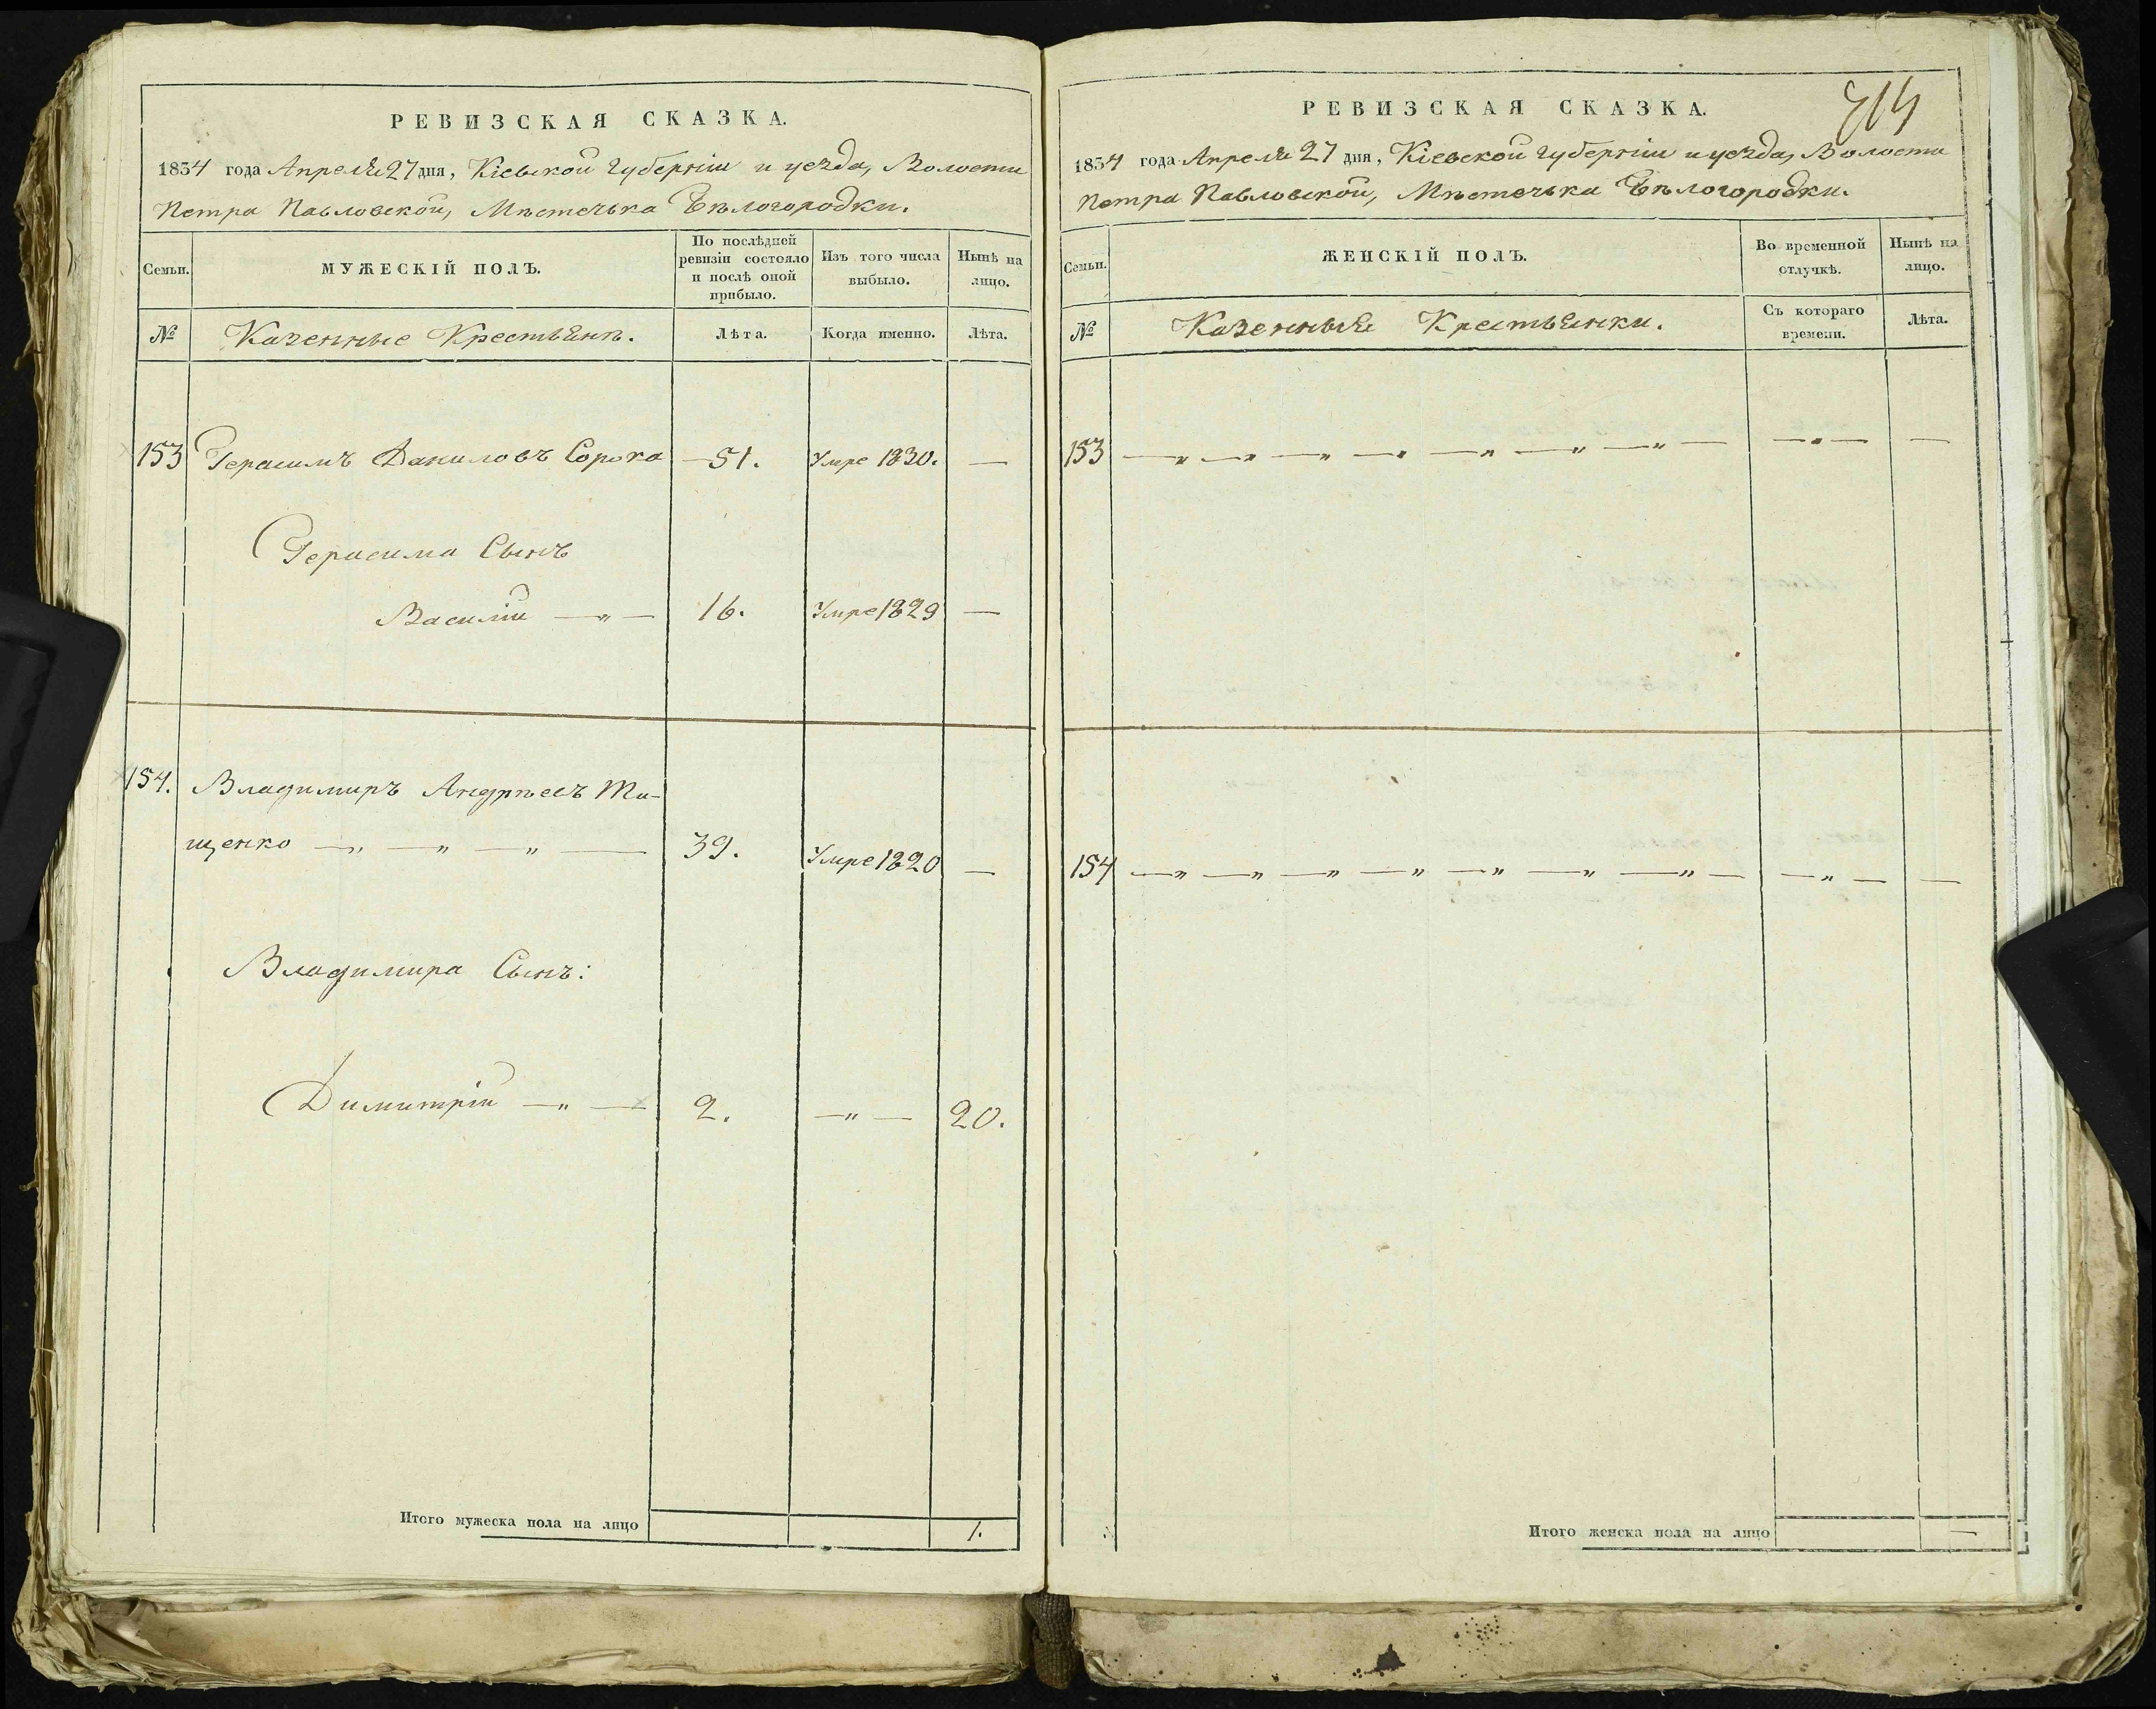 РЕВИЗСКАЯ СКАЗКА.
1834 года Апреля 27 дня, Кіевской губерніи и уезда, Волости
Петра Павловской, Мѣстечька Бѣлогородки.
Семьи.
МУЖЕСКІЙ ПОЛЪ.
По послѣдней
ревизіи состояло
и послѣ оной
прибыло.
Изъ того числа
выбыло.
Нынѣ на
лицо.
№
Казенные Крестьянѣ.
Лѣта.
Когда именно.
Лѣта.
153 Герасимъ Даниловъ Сорока — 51. Умре 1830. —
Герасима Сынъ
Василій — „ — 16. Умре 1829 —
154. Владимиръ Андрѣевъ Ти-
щенко — „ — „ — „ — 39. Умре 1820 —
Владимира Сынъ:
Димитрій — „ — 2. — „ — 20.
Итого мужеска пола на лицо 1.
714
РЕВИЗСКАЯ СКАЗКА.
1834 года Апреля 27 дня, Кіевской губерніи и уезда, Волости
Петра Павловской, Мѣстечька Бѣлогородки.
Семьи.
ЖЕНСКІЙ ПОЛЪ.
Во временной
отлучкѣ.
Нынѣ на
лицо.
№
Казенныя Крестьянки.
Съ котораго
времени.
Лѣта.
153 — „ — „ — „ — „ — „ — „ — „ — — „ — —
154 — „ — „ — „ — „ — „ — „ — „ — — „ — —
Итого женска пола на лицо —